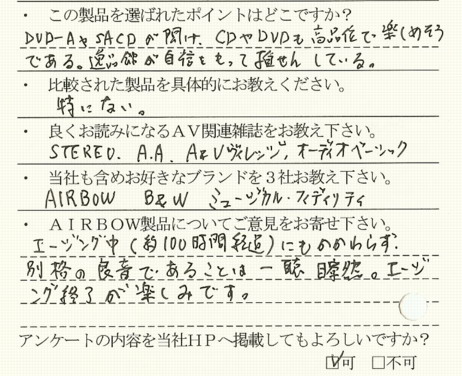 ・ この製品を選ばれたポイントはどこですか？
DVD-AやSACDが聞け、CDやDVDも高品位で楽しめそう
である。逸品館が自信をもって推せんしている。
・ 比較された製品を具体的にお教えください。
特にない。
・ 良くお読みになるＡＶ関連雑誌をお教え下さい。
STEREO. A.A. A&Vヴィレッジ, オーディオベーシック
・ 当社も含めお好きなブランドを３社お教え下さい。
AIRBOW B&W ミュージカル・フィディリティ
・ ＡＩＲＢＯＷ製品についてご意見をお寄せ下さい。
エージング中（約100時間経過）にもかかわらず.
別格の良音であることは一聴瞭然。エージ
ング終了が楽しみです。
アンケートの内容を当社ＨＰへ掲載してもよろしいですか？
☑可 □不可